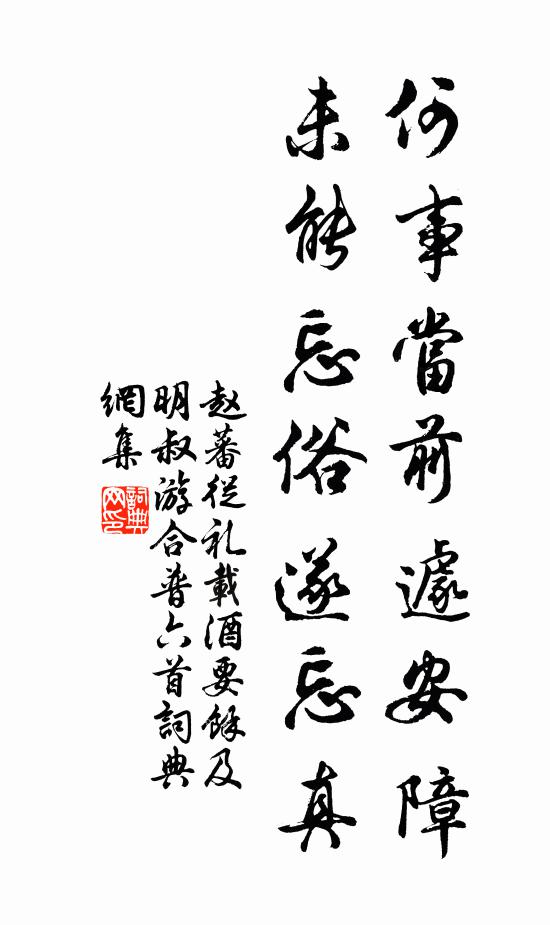 何事當前遽安障
未能忘俗遂忘真
赵蕃從礼載酒要餘及
明叔游合普六首詞典
網集
詞典
网印